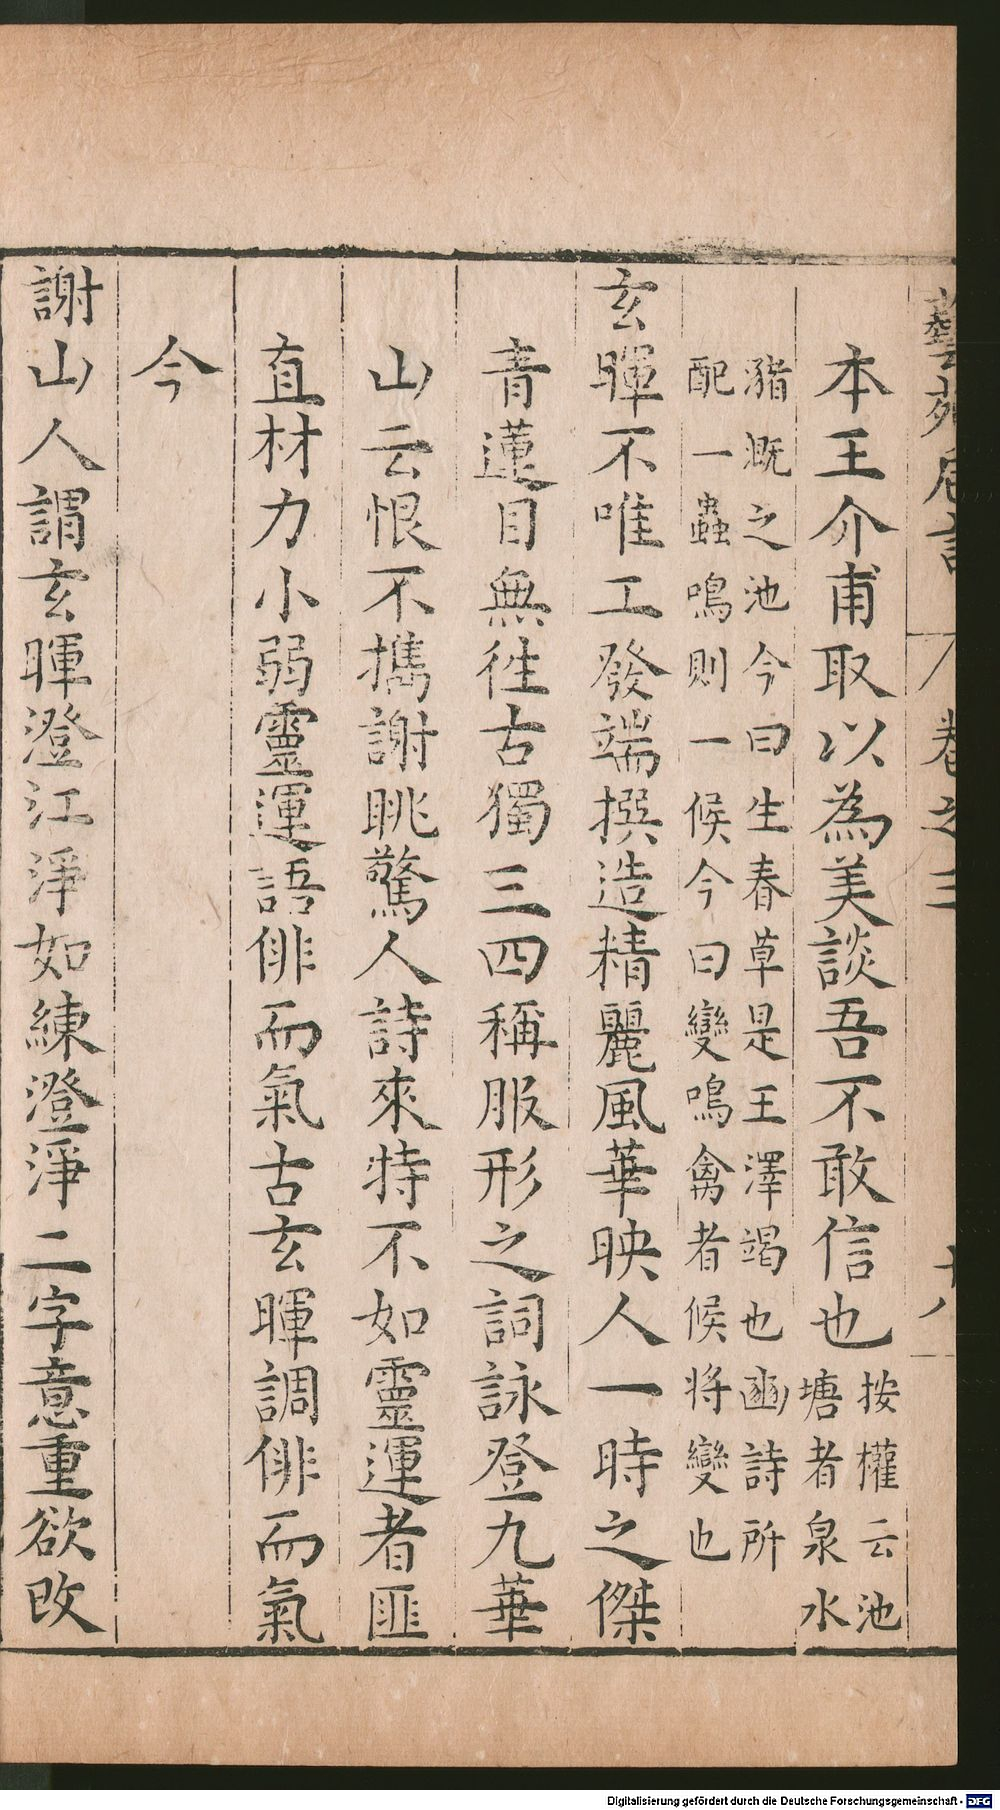 藝苑卮言 卷之三 十八
本王介甫取以為美談吾不敢信也按權云池
塘者泉水
豬溉之池今曰生春草是王澤竭也豳詩所
配一蟲鳴則一候今曰變鳴禽者候将變也
玄暉不唯工發端撰造精麗風華映人一時之傑
青蓮目無徃古獨三四稱服形之詞詠登九華
山云恨不攜謝眺驚人詩來特不如靈運者匪
直材力小弱靈運語俳而氣古玄暉調俳而氣
今
謝山人謂玄暉澄江淨如練澄淨二字意重欲改
Digitalisierung gefördert durch die Deutsche Forschungsgemeinschaft - DFG